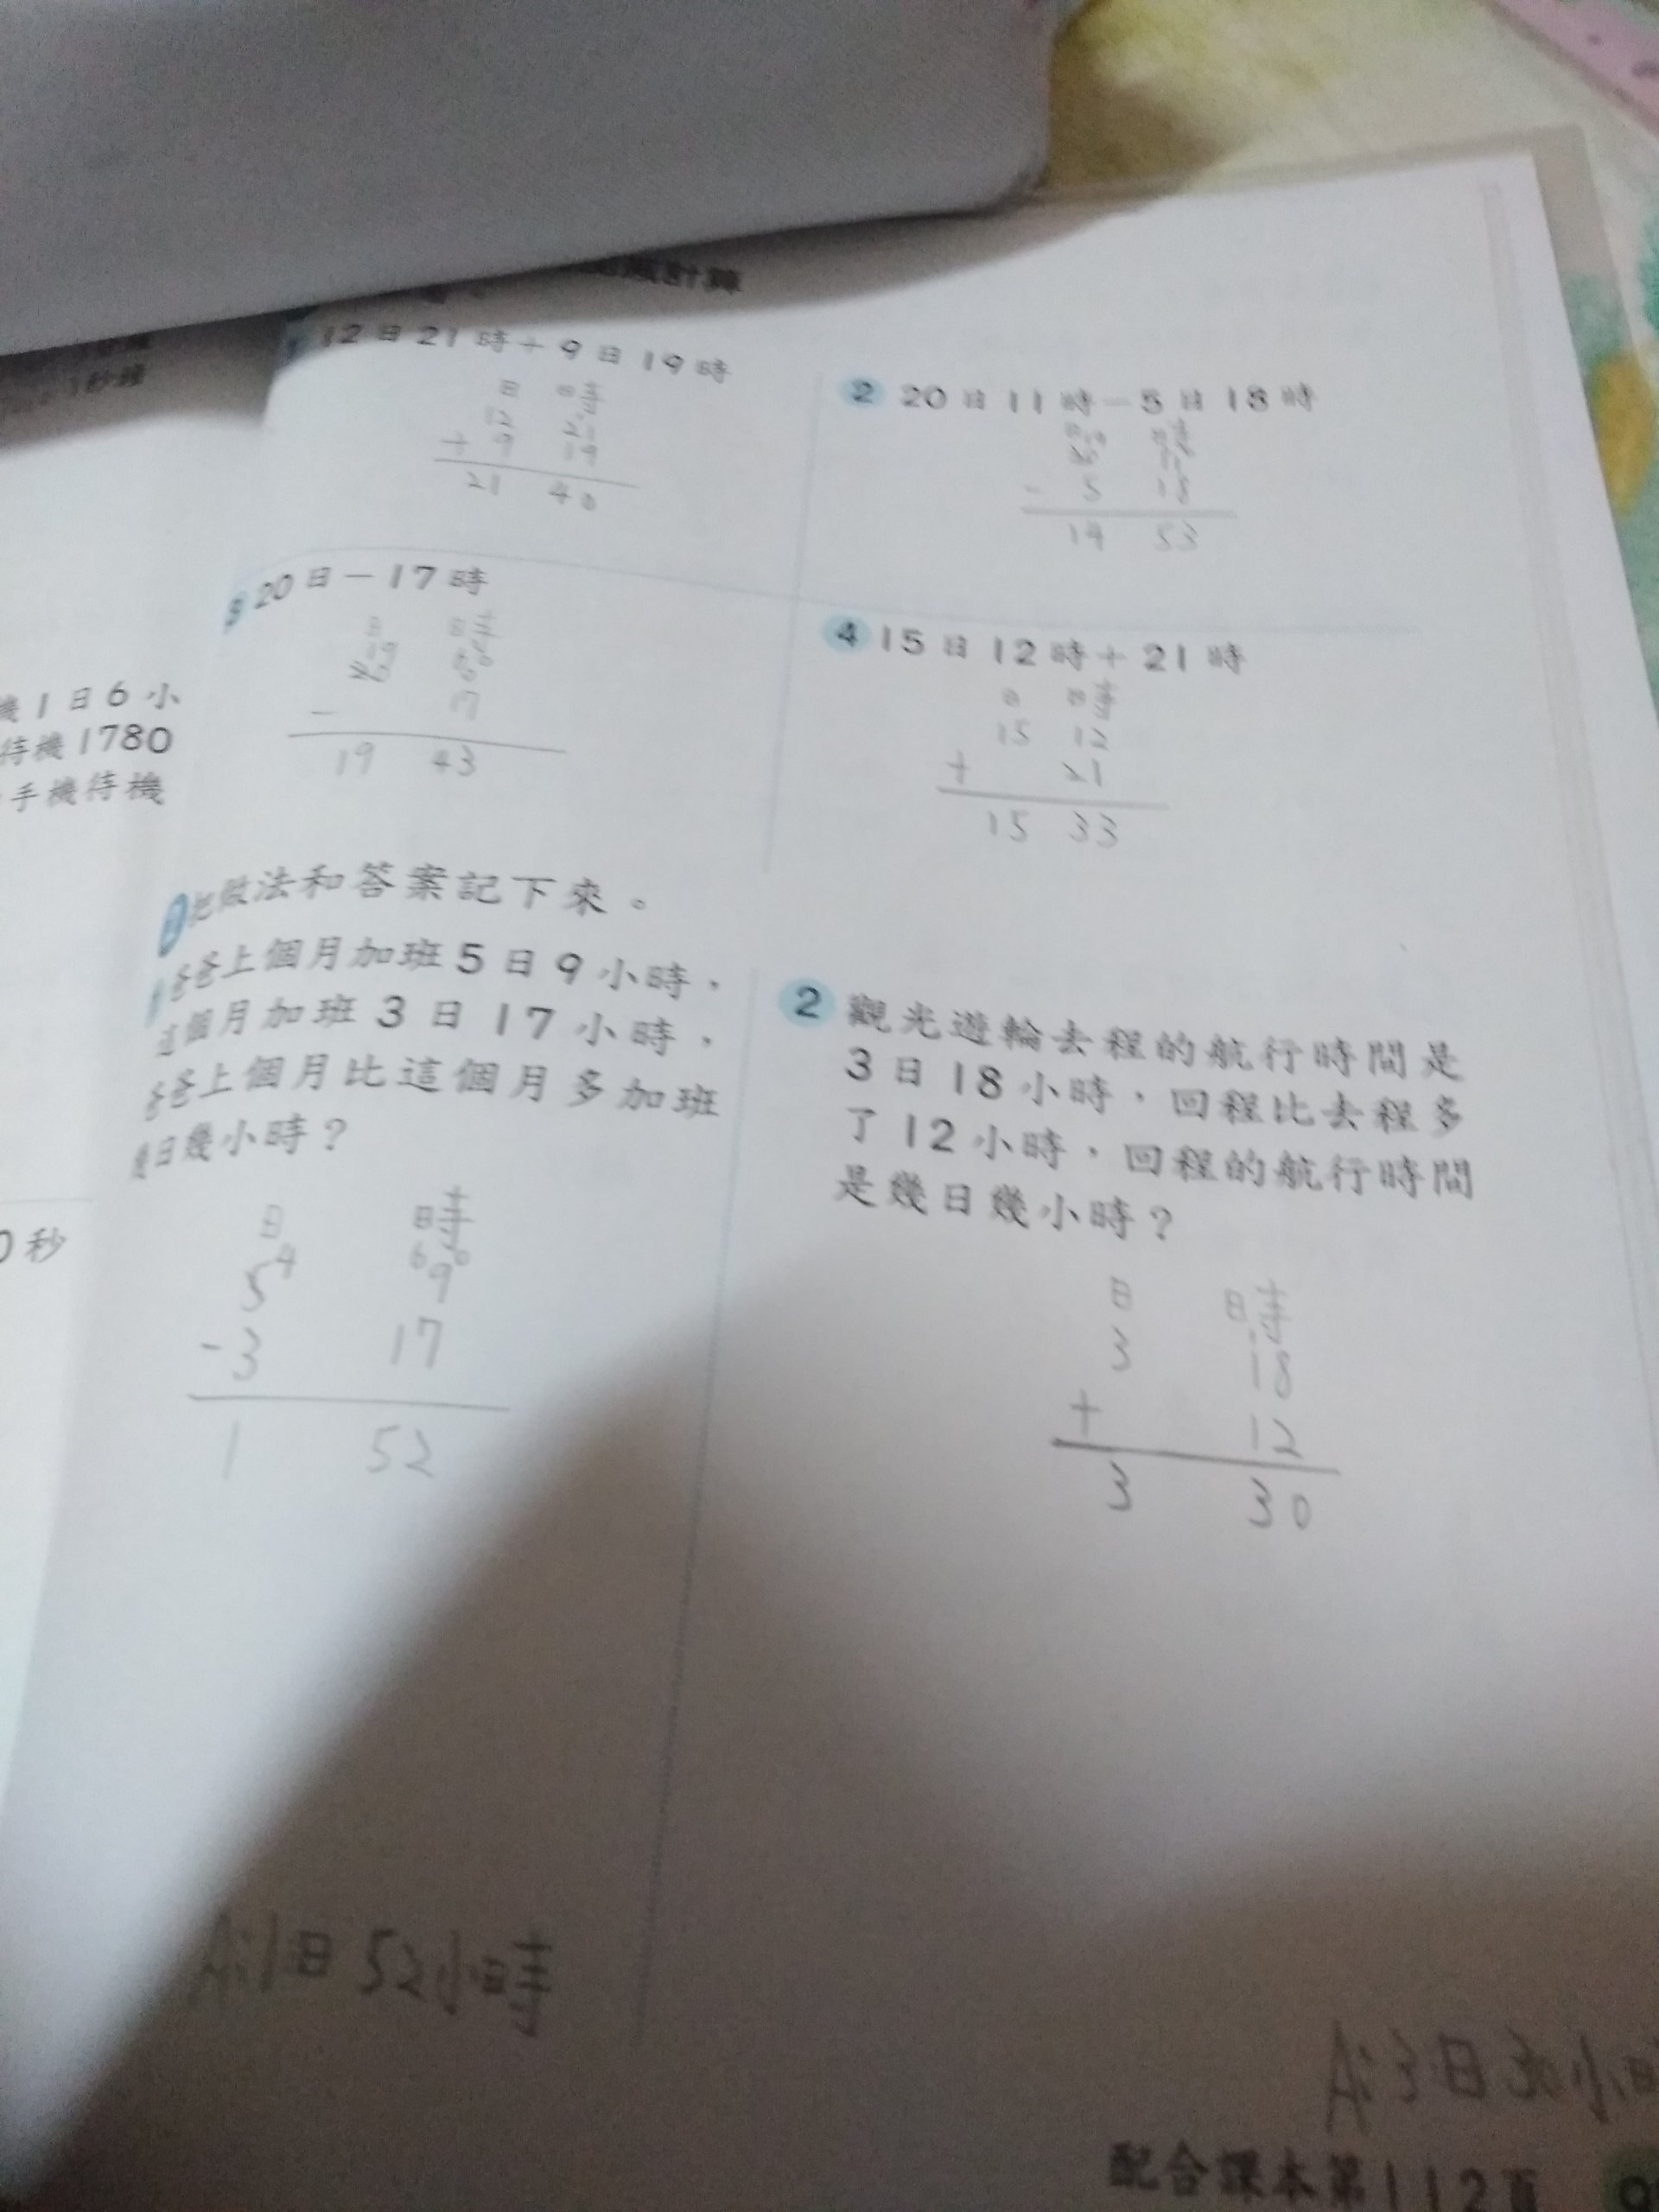 計算
12日21時+9日19時
日 時
12 21
+ 9 19
21 40
2 20日11時-5日18時
日 時
19 60
20 11
- 5 18
14 53
3 20日-17時
日 時
19 60
20 0
- 17
19 43
4 15日12時+21時
日 時
15 12
+ 21
15 33
機1日6小
待機1780
手機待機
0秒
把做法和答案記下來。
爸爸上個月加班5日9小時,
這個月加班3日17小時,
爸爸上個月比這個月多加班
幾日幾小時?
日 時
4 60
5 9
-3 17
1 52
A:1日52小時
2 觀光遊輪去程的航行時間是
3日18小時,回程比去程多
了12小時,回程的航行時間
是幾日幾小時?
日 時
3 18
+ 12
3 30
A:3日30小時
配合課本第112頁